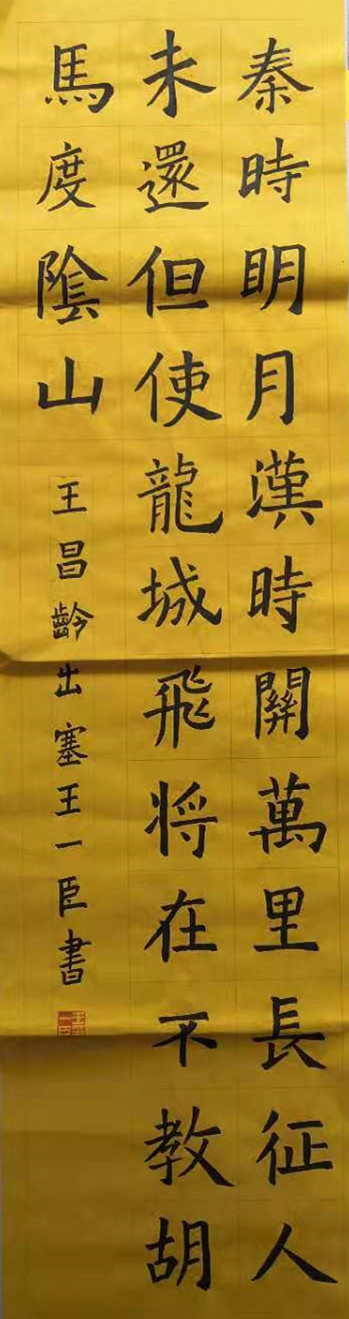 秦時明月漢時關萬里長征人
未還但使龍城飛将在不教胡
馬度陰山
王昌齡出塞王一臣書